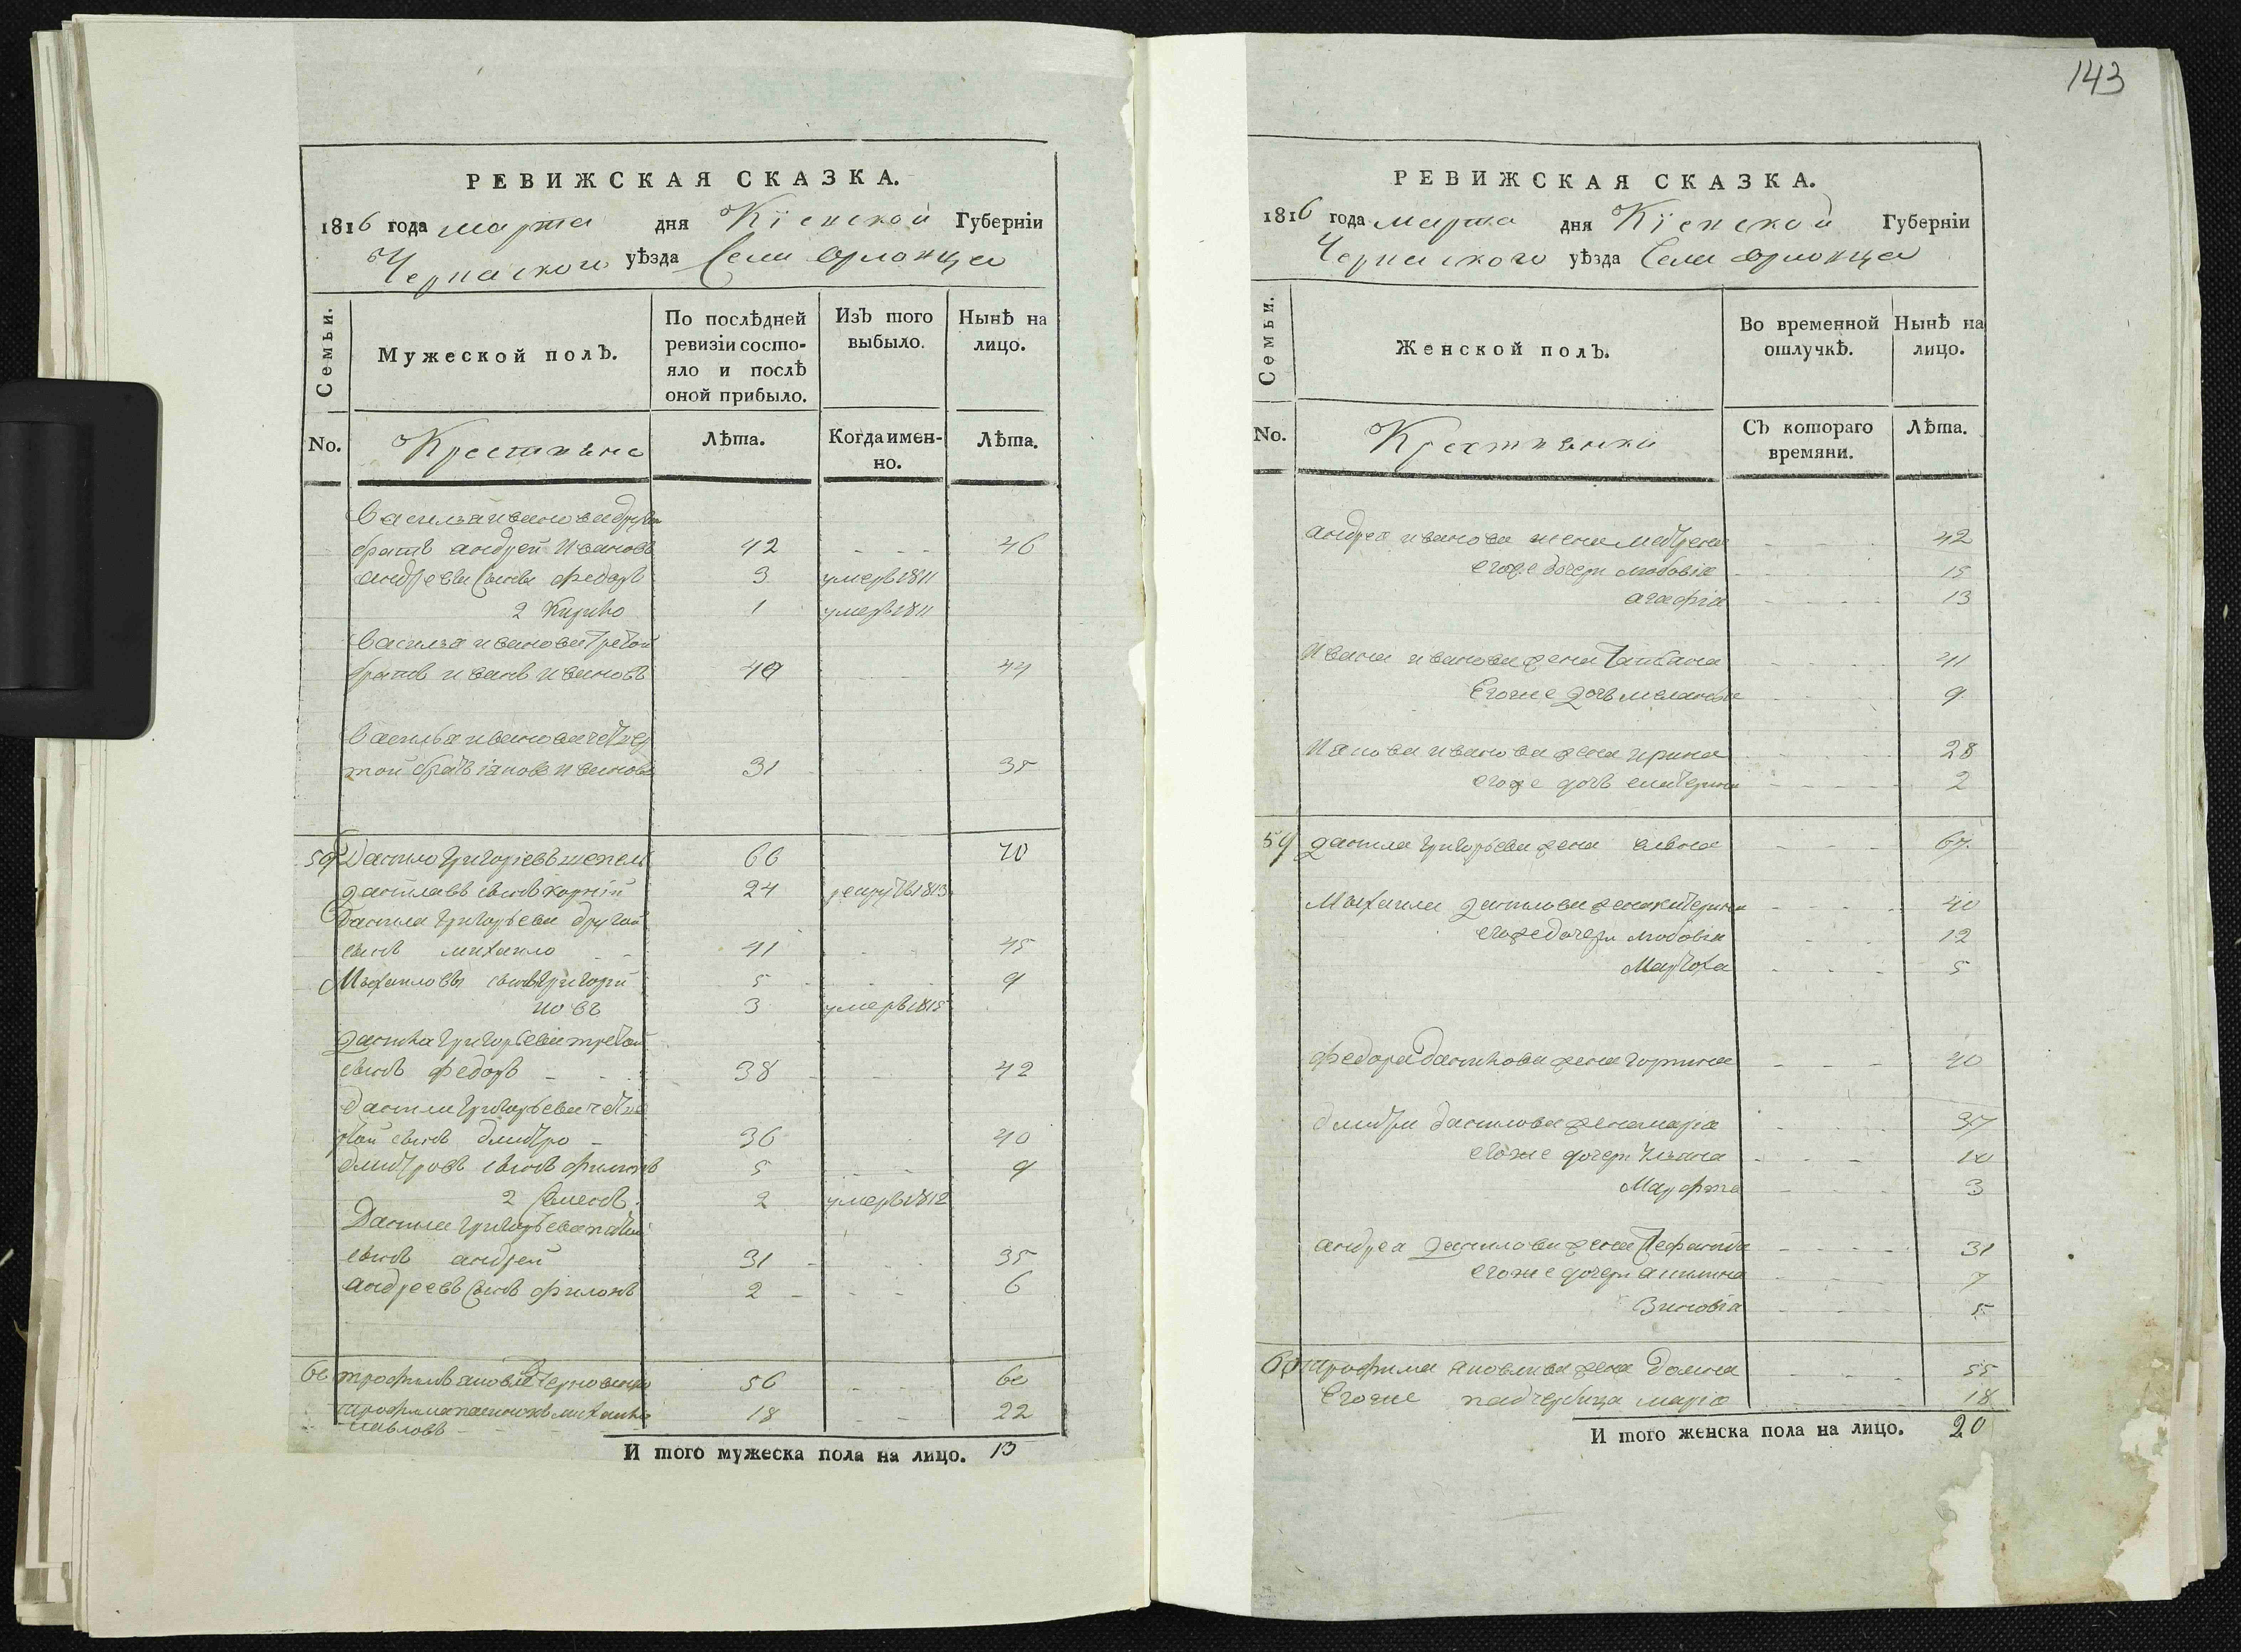 143
РЕВИЖСКАЯ СКАЗКА.
1816 года марта дня Кіевской Губерніи
Черкаского уѣзда Села Орловца
Семьи. Мужеской полъ. По послѣдней ревизіи состояло и послѣ оной прибыло. Изъ того выбыло. Нынѣ на лицо.
No. Крестьяне Лѣта. Когда именно. Лѣта.
Василя иванова другой
братъ андрей Ивановъ 42 - - - 46
андреевы сыны федоръ 3 умеръ 1811
2 Кирило 1 умеръ 1811
Василя иванова третой
братъ иванъ ивановъ 40 44
Василья иванова четвер
той братъ іаковъ ивановъ 31 35
59 Данило Григоріевъ 66 70
даниловъ сынъ корній 24 рекрутъ 1813
Данила Григорьева другой
сынъ михайло 41 45
Михайловы сыны Григори 5 9
3 умеръ 1815
Данила Григорьева третой
сынъ федоръ 38 42
Данила Григорьева четвер
той сынъ дмитро 36 40
дмитровъ сынъ филипъ 5 9
2 Семенъ 2 умеръ 1812
Данила Григорьева пятой
сынъ андрей 31 35
андреевъ сынъ филонъ 2 6
60 трофимъ 56 60
трофима пасынокъ михайло 18 22
павловъ
И того мужеска пола на лицо. 13
РЕВИЖСКАЯ СКАЗКА.
1816 года марта дня Кіевской Губерніи
Черкаского уѣзда Села Орловца
Семьи. Женской полъ. Во временной отлучкѣ. Нынѣ на лицо.
No. Крестьянки Съ котораго времяни. Лѣта.
андрея иванова жена матрена 42
егоже дочери любовія 15
агафія 13
Ивана иванова жена татіана 41
Егоже дочь меланія 9
Иакова иванова жена ирина 28
егоже дочь екатерина 2
59 данила григорьева жена 67
Михаила данилова жена катерина 40
егоже дочери любовія 12
5
федора данилова жена горпина 40
дмитра данилова жена марія 37
егоже дочери 10
Марфа 3
андрея данилова жена стефанида 31
егоже дочери акилина 7
Зиновія 5
60 трофима яковлева жена домна 55
Егоже падчерица марія 18
И того женска пола на лицо. 20